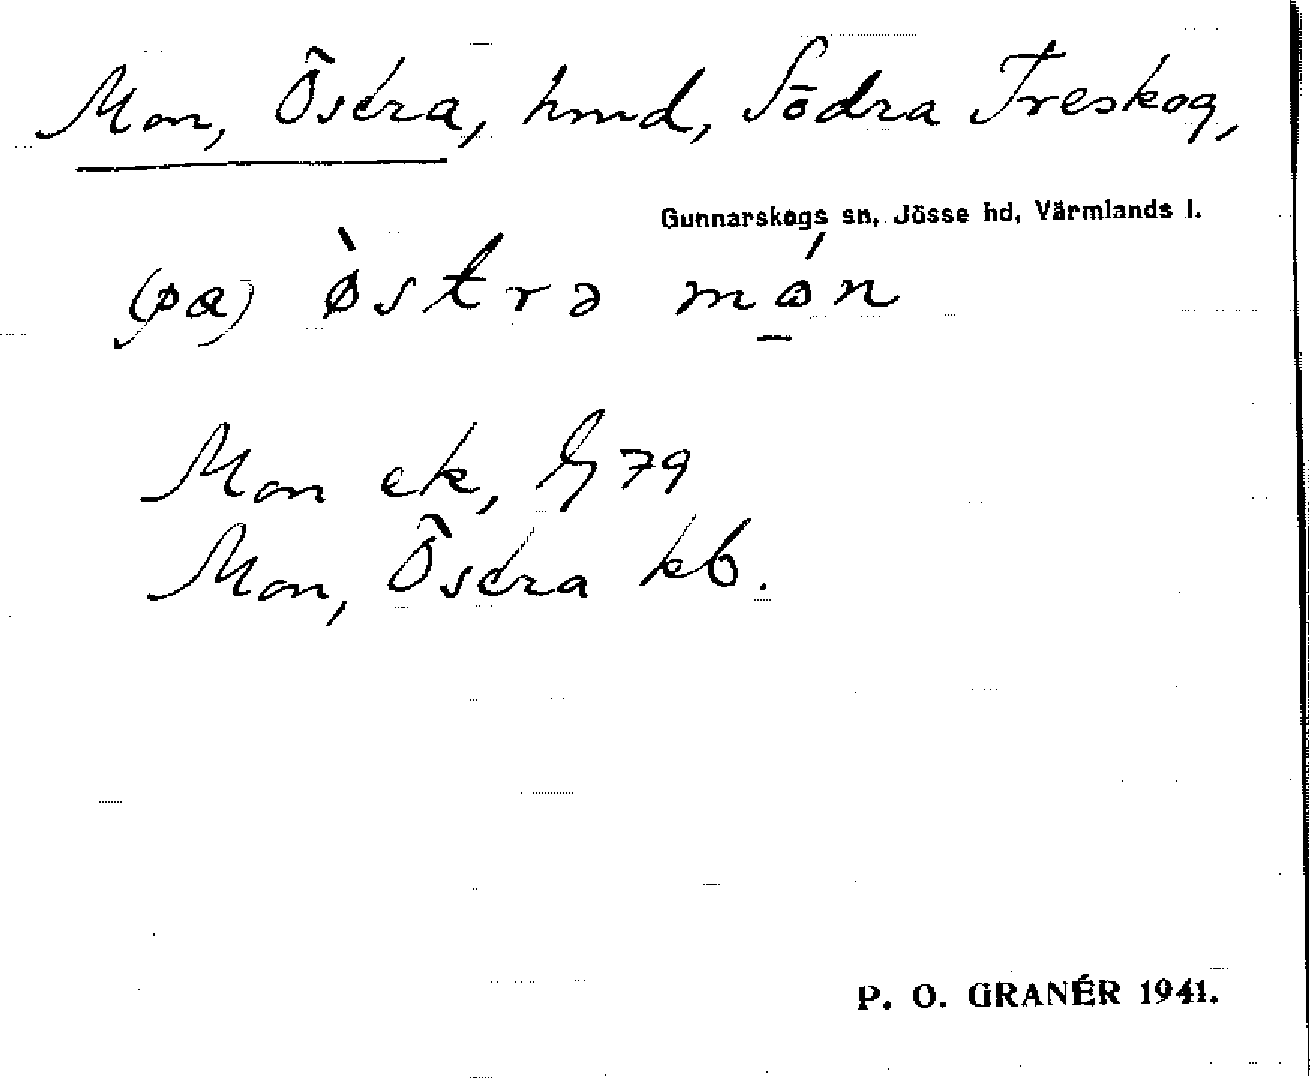 Mon, Östra, hmd, Södra Treskog,
Gunnarskogs sn, Jösse hd, Värmlands l.
(pa) ø̀strə mó̱n
Mon ek, G79
Mon, Östra kb.
P. O. GRANÉR 1941.